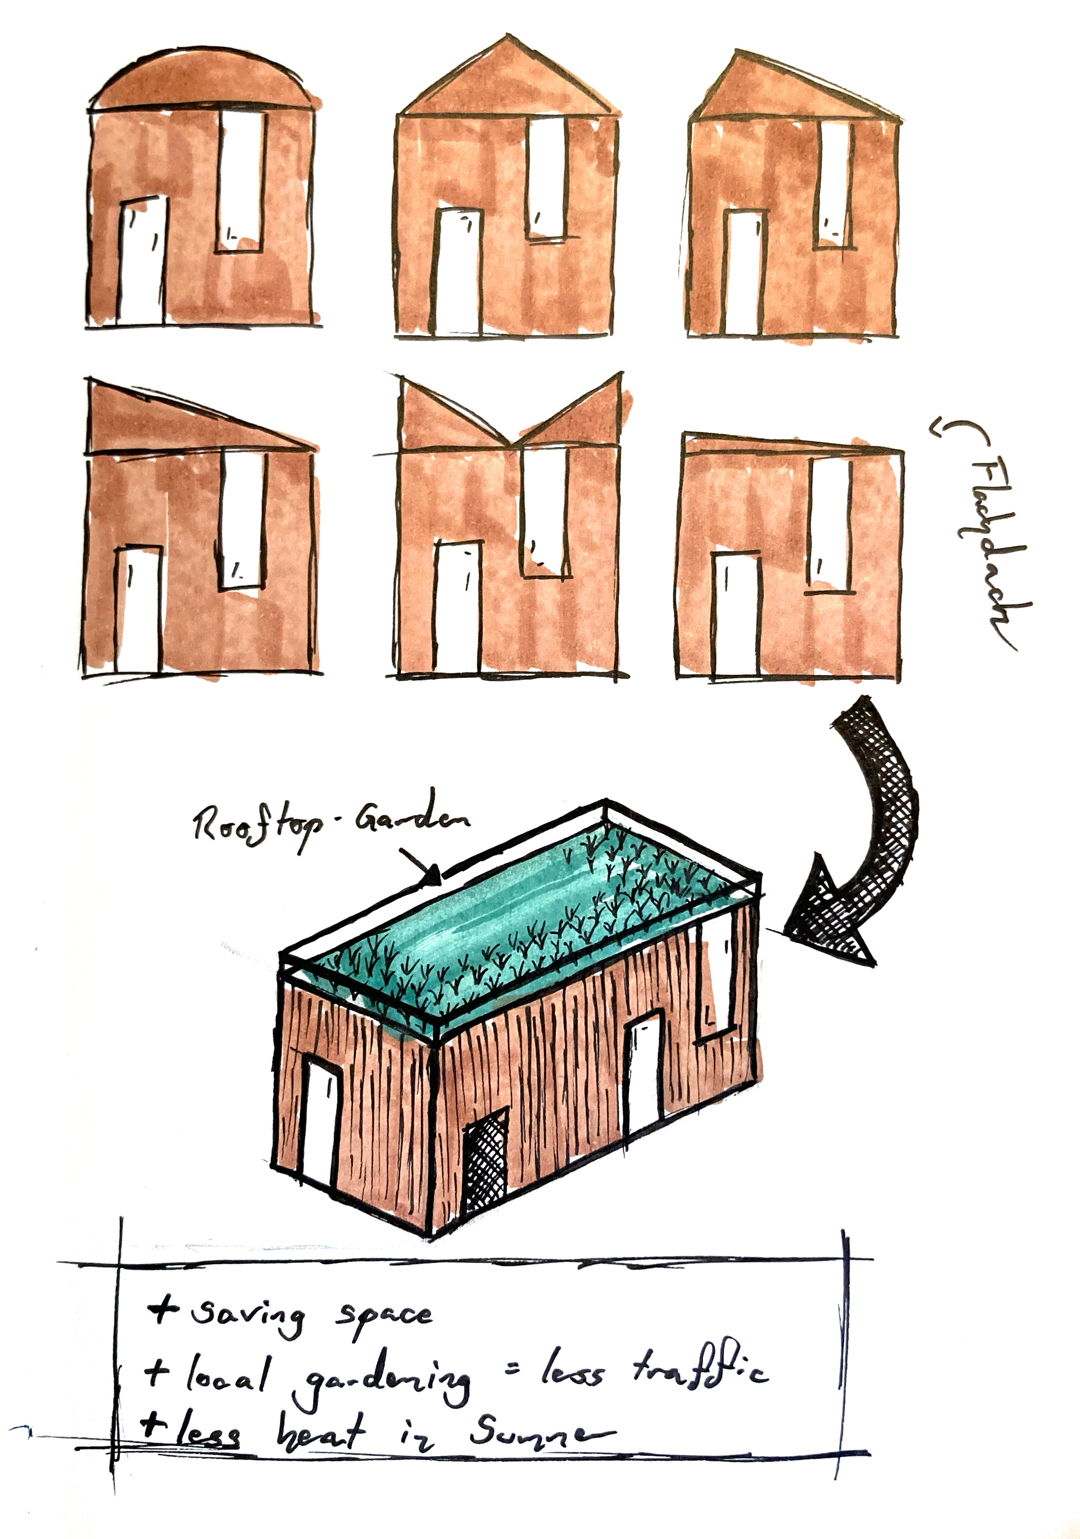 Flachdach
Rooftop-Garden
+ saving space
+ local gardening = less traffic
+ less heat in Summer